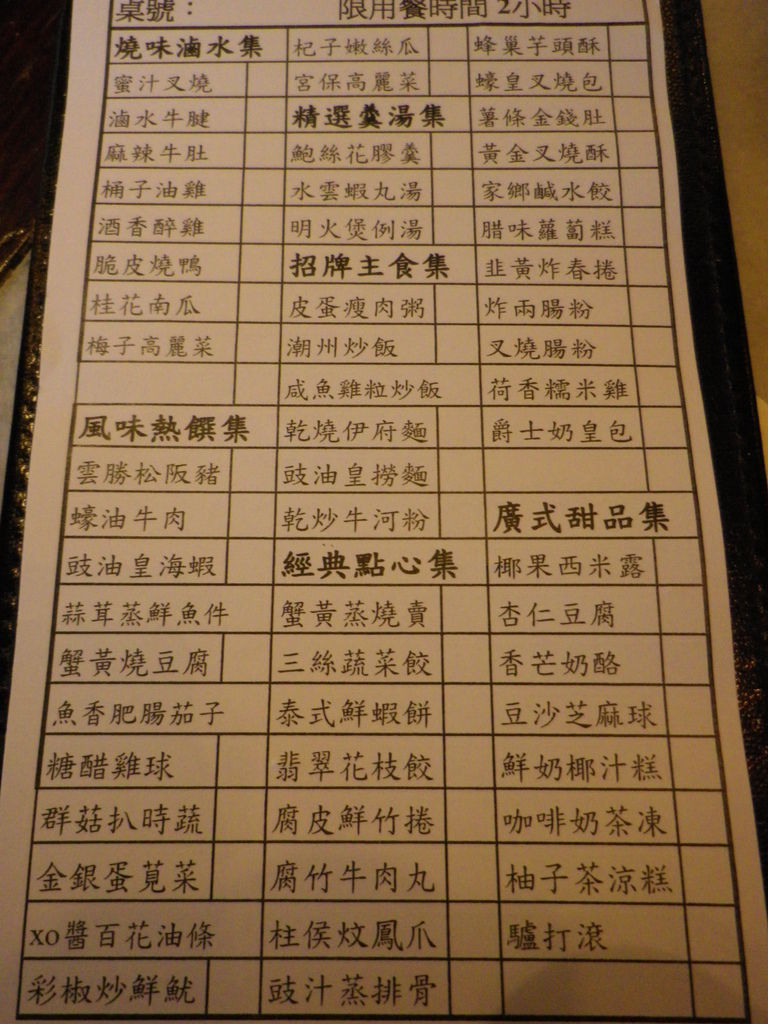 桌號： 限用餐時間 2小時
燒味滷水集 杞子嫩絲瓜 蜂巢芋頭酥
蜜汁叉燒 宮保高麗菜 蠔皇叉燒包
滷水牛腱 精選羹湯集 薯條金錢肚
麻辣牛肚 鮑絲花膠羹 黃金叉燒酥
桶子油雞 水雲蝦丸湯 家鄉鹹水餃
酒香醉雞 明火煲例湯 腊味蘿蔔糕
脆皮燒鴨 招牌主食集 韭黃炸春捲
桂花南瓜 皮蛋瘦肉粥 炸兩腸粉
梅子高麗菜 潮州炒飯 叉燒腸粉
咸魚雞粒炒飯 荷香糯米雞
風味熱饌集 乾燒伊府麵 爵士奶皇包
雲勝松阪豬 豉油皇撈麵
蠔油牛肉 乾炒牛河粉 廣式甜品集
豉油皇海蝦 經典點心集 椰果西米露
蒜茸蒸鮮魚件 蟹黃蒸燒賣 杏仁豆腐
蟹黃燒豆腐 三絲蔬菜餃 香芒奶酪
魚香肥腸茄子 泰式鮮蝦餅 豆沙芝麻球
糖醋雞球 翡翠花枝餃 鮮奶椰汁糕
群菇扒時蔬 腐皮鮮竹捲 咖啡奶茶凍
金銀蛋莧菜 腐竹牛肉丸 柚子茶涼糕
xo醬百花油條 柱侯炆鳳爪 驢打滾
彩椒炒鮮魷 豉汁蒸排骨